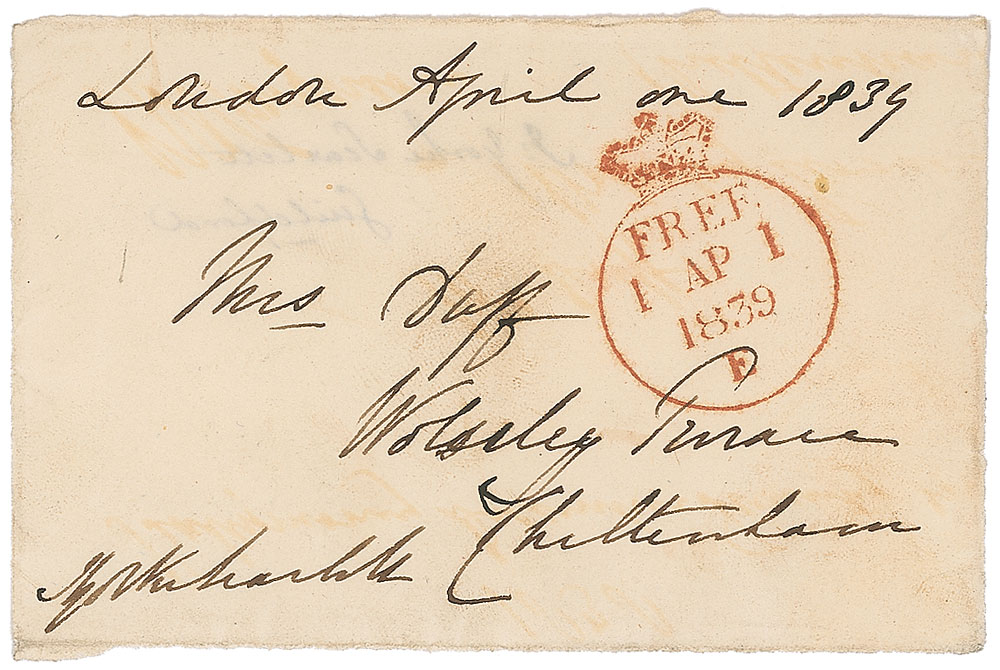 London April one 1839
FREE
1 AP 1
1839
E
Mrs Duff
Wolseley Terrace
Cheltenham